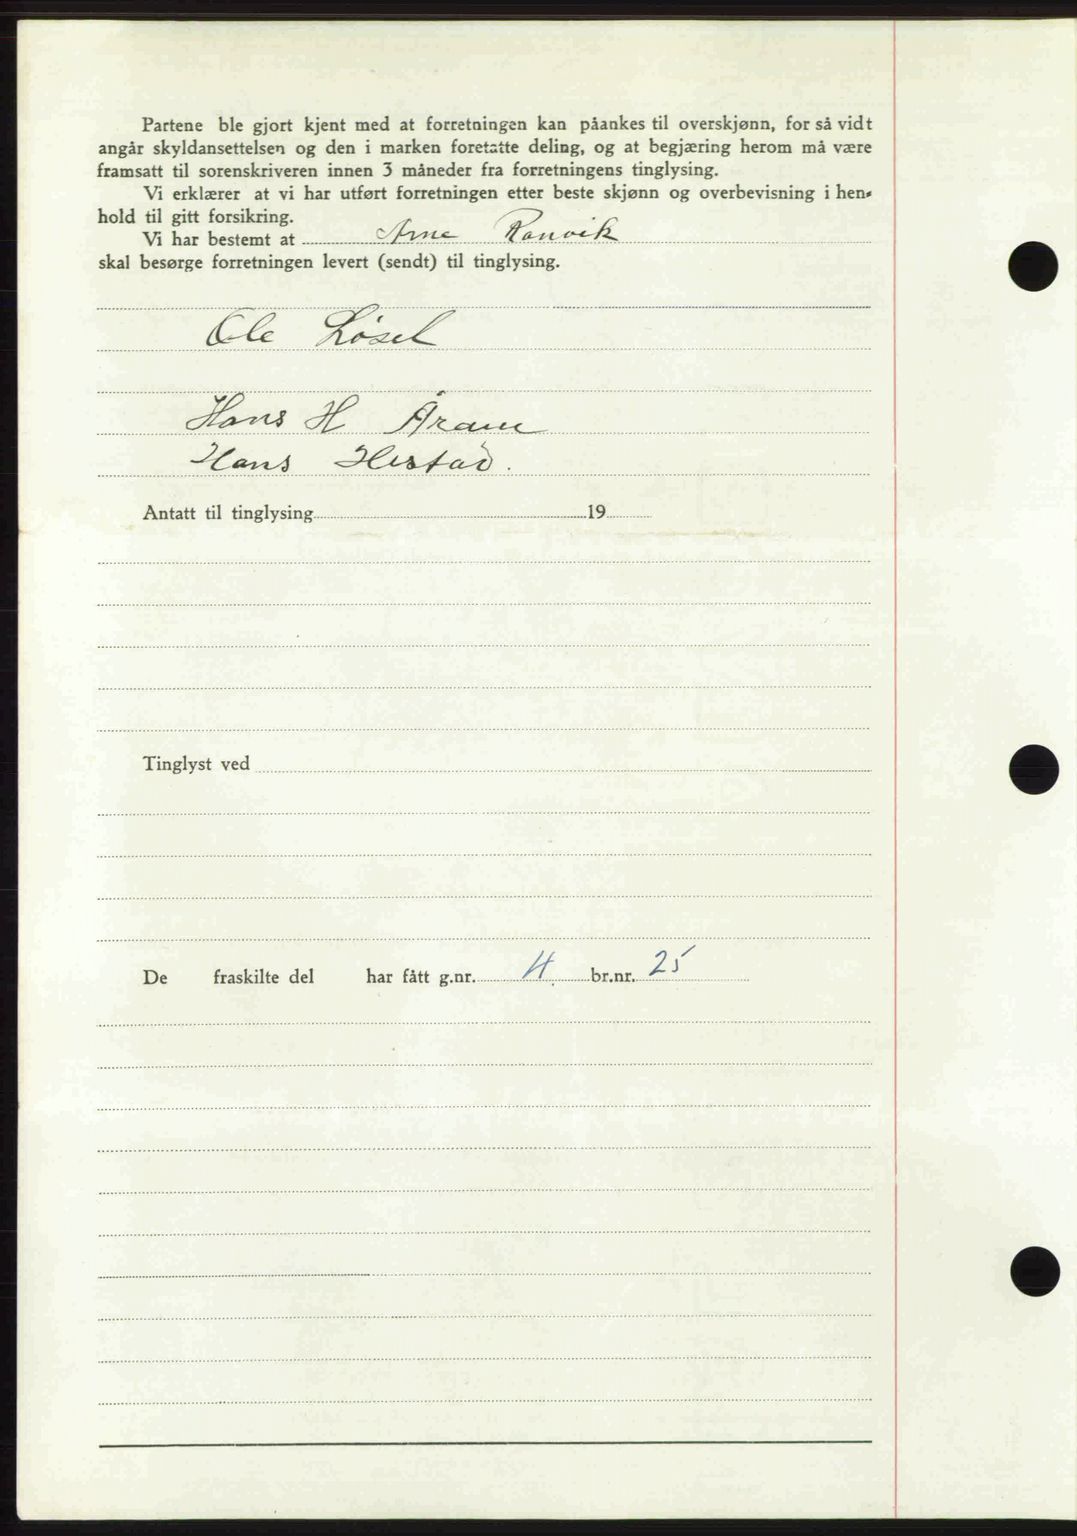 Partene ble gjort kjent med at forretningen kan påankes til overskjønn, for så vidt
angår skyldansettelsen og den i marken foretatte deling, og at begjæring herom må være
framsatt til sorenskriveren innen 3 måneder fra forretningens tinglysing.
Vi erklærer at vi har utført forretningen etter beste skjønn og overbevisning i hen-
hold til gitt forsikring.
Vi har bestemt at Arne Ranvik
skal besørge forretningen levert (sendt) til tinglysing.
Ole Løset
Hans H Åram
Hans Hestad.
Antatt til tinglysing 19
Tinglyst ved
De fraskilte del har fått g.nr. 4 br.nr. 25